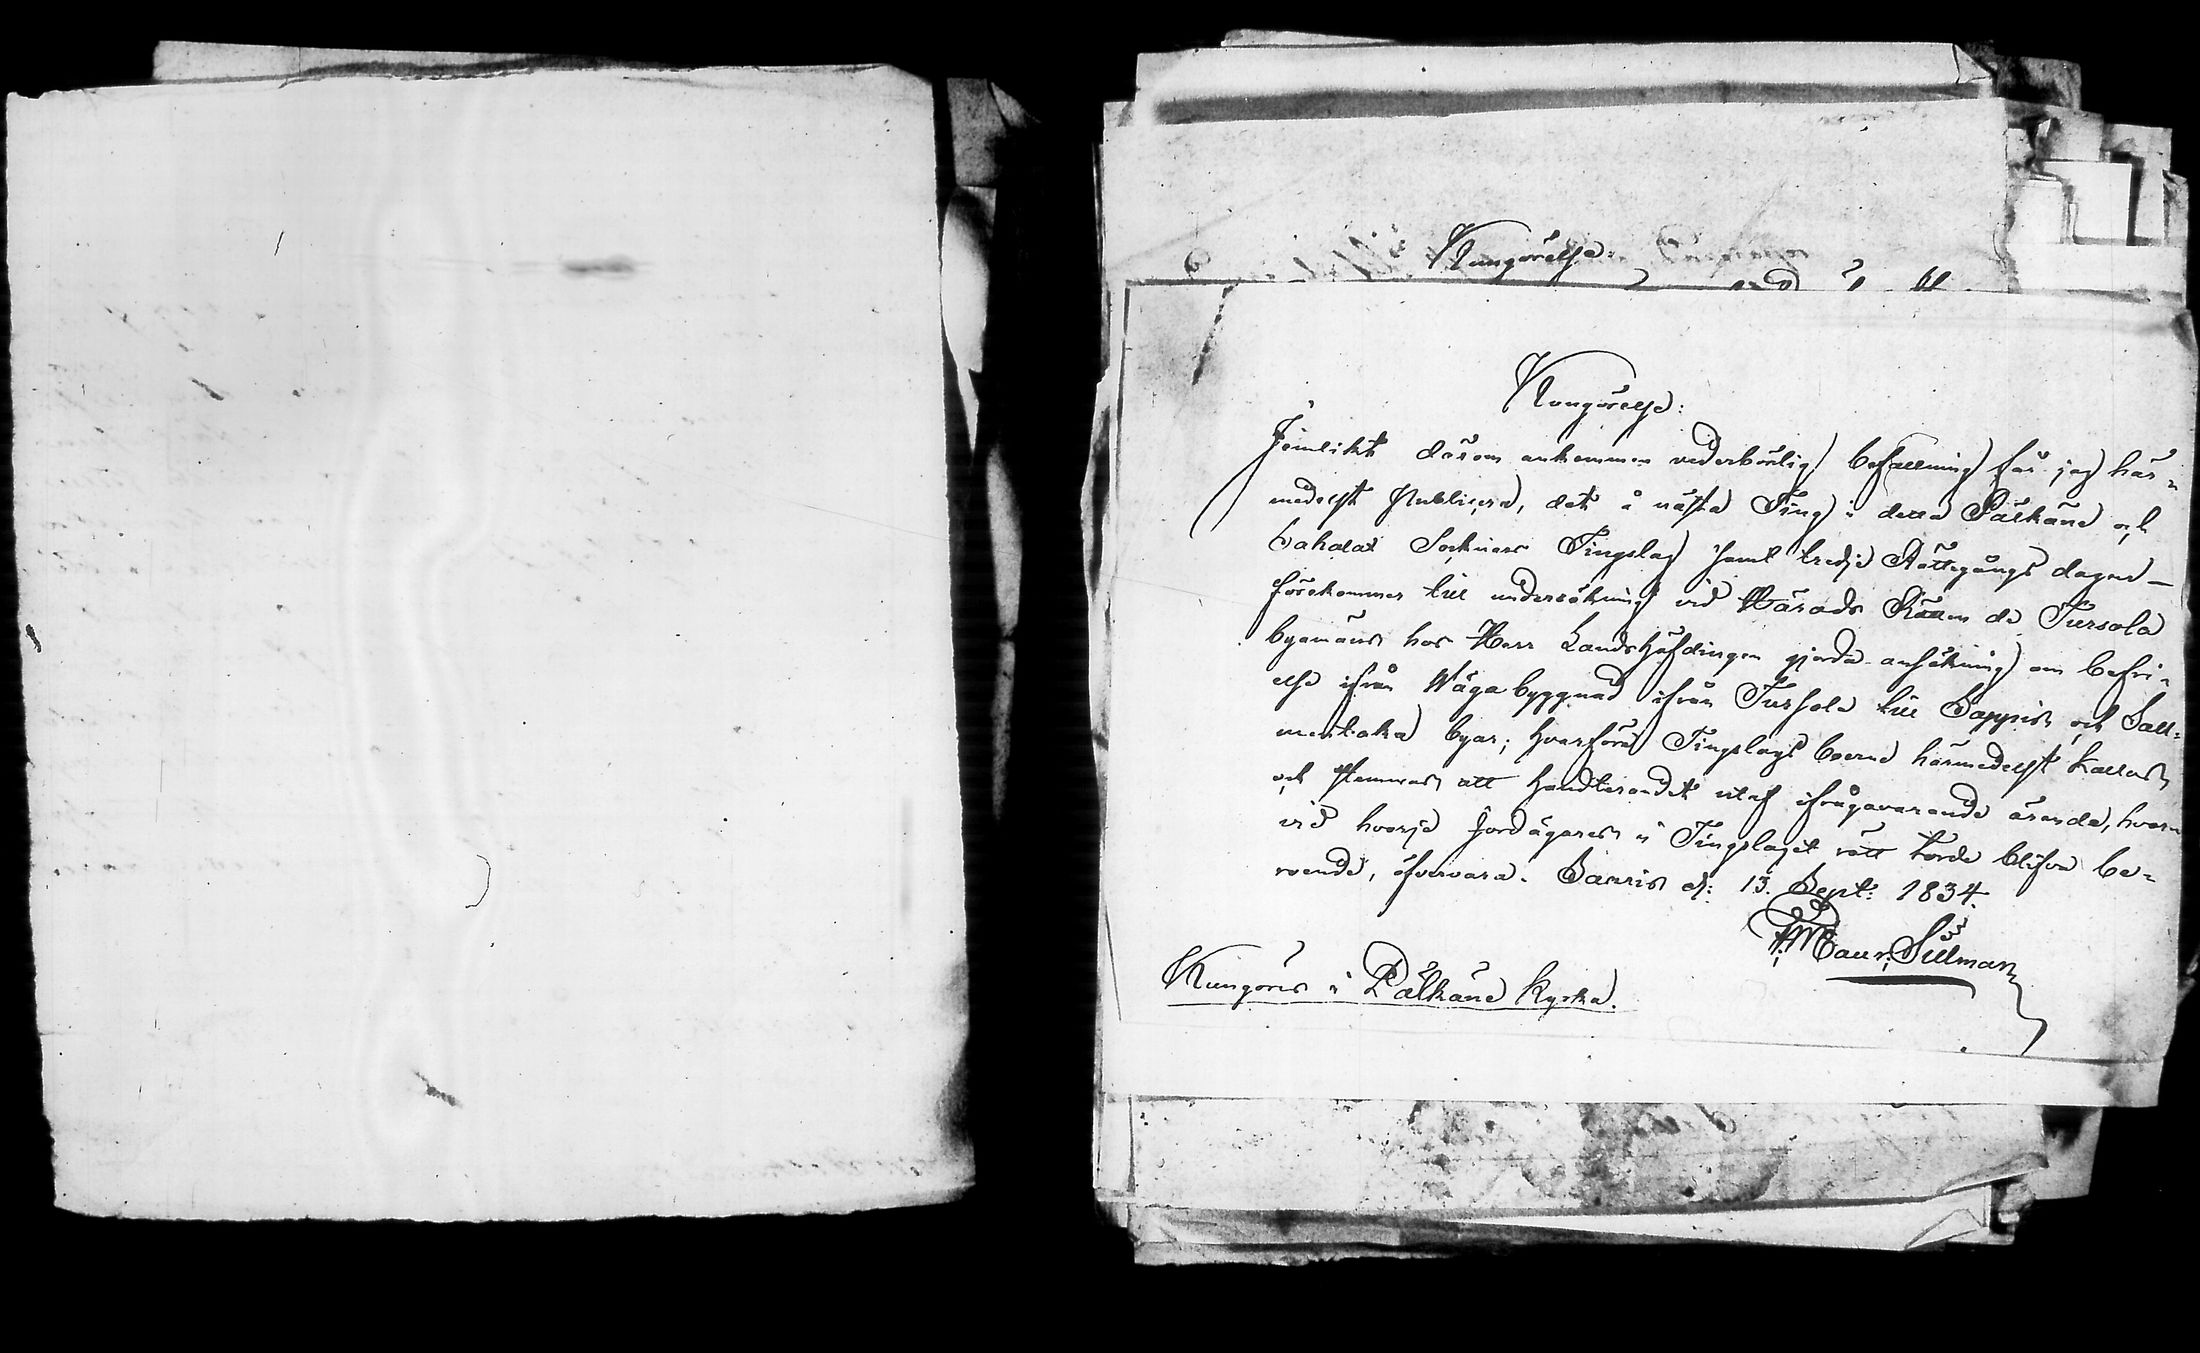 Kungörelse:
Kungörelse:
Jemlikt därom ankommen vederbörlig befallning får jag här-
medelst Publicera, det å nästa Ting i detta Pälkäne och
Sahalax Socknars Tingslag samt tredje Rättegångs dagen
förekommer till undersökning vid Härads Rätten de Tursola
byamäns hos Herr Landshöfdingen gjorda ansökning om befri-
else ifrån Wäga byggnad ifrån Tursola till Sappis och Sall-
mentaka byar; hvarföre Tingslags boerne härmedelst kallas
och stemmas att handterandet utaf ifrågavarande ärende, hvar-
vid hvarje Jordägares i Tingslaget rätt torde blifva be-
roende, öfvervara. Sarris d: 13. Sept: 1834.
Maur: Silman
Kungöres i Pälkäne Kyrka.